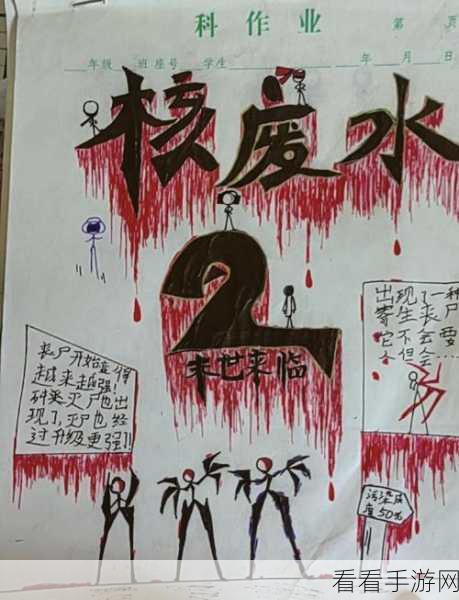 科作业 第 页
年级 班 座号 学生 年 月 日
核废水
2
末世来临
出现了一种
寄生来尸
它不会要
人但会…
来尸开始变得
越来越强!
研类灭尸也出
现了,灭尸也经
过升级更强!!
污染浓
度50%
看看手游网